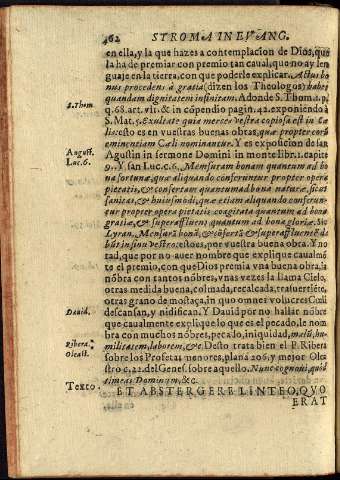 462 STROMA IN EVANG.
en ella, y la que hazes a contemplacion de Dios, que
la ha de premiar con premio tan caual, que no ay len
guaje en la tierra, con que poderle explicar. Actus bo
nus procedens à gratia (dizen los Theologos) habet
quandam dignitatem infinitam. Adonde S. Thom. 1. p.
S. Thom.
q. 68. art. vlt. & in cõpendio pagin. 42. exponiendo à
S. Mat. 5. Exultate quia merces vestra copiosa est in Cæ
lis: esto es en vuestras buenas obras, quæ propter cor
eminentiam Cæli nominantur. Y es exposicion de san
August.
Agustin in sermone Domini in monte libr. 1. capite
Luc. 6.
9. Y san Luc. c. 6. Mensuram bonam quantum ad bo
na fortunæ, quæ aliquando conseruntur propter opera
pietatis, & confertam quantum ad bona naturæ, sicut
sanitas, & huiusmodi, quæ etiam aliquando conserun
tur propter opera pietatis coagitata quantum ad bona
gratiæ, & superaffluens quantum ad bona gloriæ. Sic
Lyran. Mensurã bonã, & cõfertã & superaffluentẽ da
bũt in sinu vestro: esto es, por vuestra buena obra. Y no
tad, que por no auer nombre que explique caualmẽ
te el premio, con que Dios premia vna buena obra, la
nõbra con tantos nõbres, y nas vezes la llama Cielo,
otras medida buena, colmada, recalcada, reafuertiéte,
otras grano de mostaça, in quo omnes volucres Cœli
Dauid.
descansan, y nidifican. Y Dauid por no hallar nõbre
que caualmente explique lo que es el pecado, le nom
bra con muchos nõbres, pecado, iniquidad, malũ, hu-
Ribera.
militatem, laborem, &c. Desto trata bien el P. Ribera
Oleast.
sobre los Profetas menores, plana 206. y mejor Olea
stro c. 22. del Genes. sobre aquello. Nunc cognoui, quòd
timeas Dominum, &c.
Texto.
ET ABSTERGERE LINTEO, QVO
ERAT